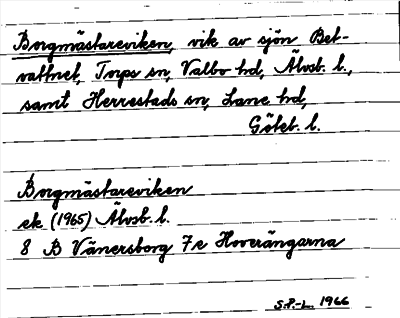 Borgmästareviken, vik av sjön Bet-
vattnet, Torps sn, Valbo hd, Älvsb. l.,
samt Herrestads sn, Lane hd,
Göteb. l.
Borgmästareviken
ek (1965) Älvsb. l.
8 B Vänersborg 7e Hoverängarna
S.P.-L. 1966